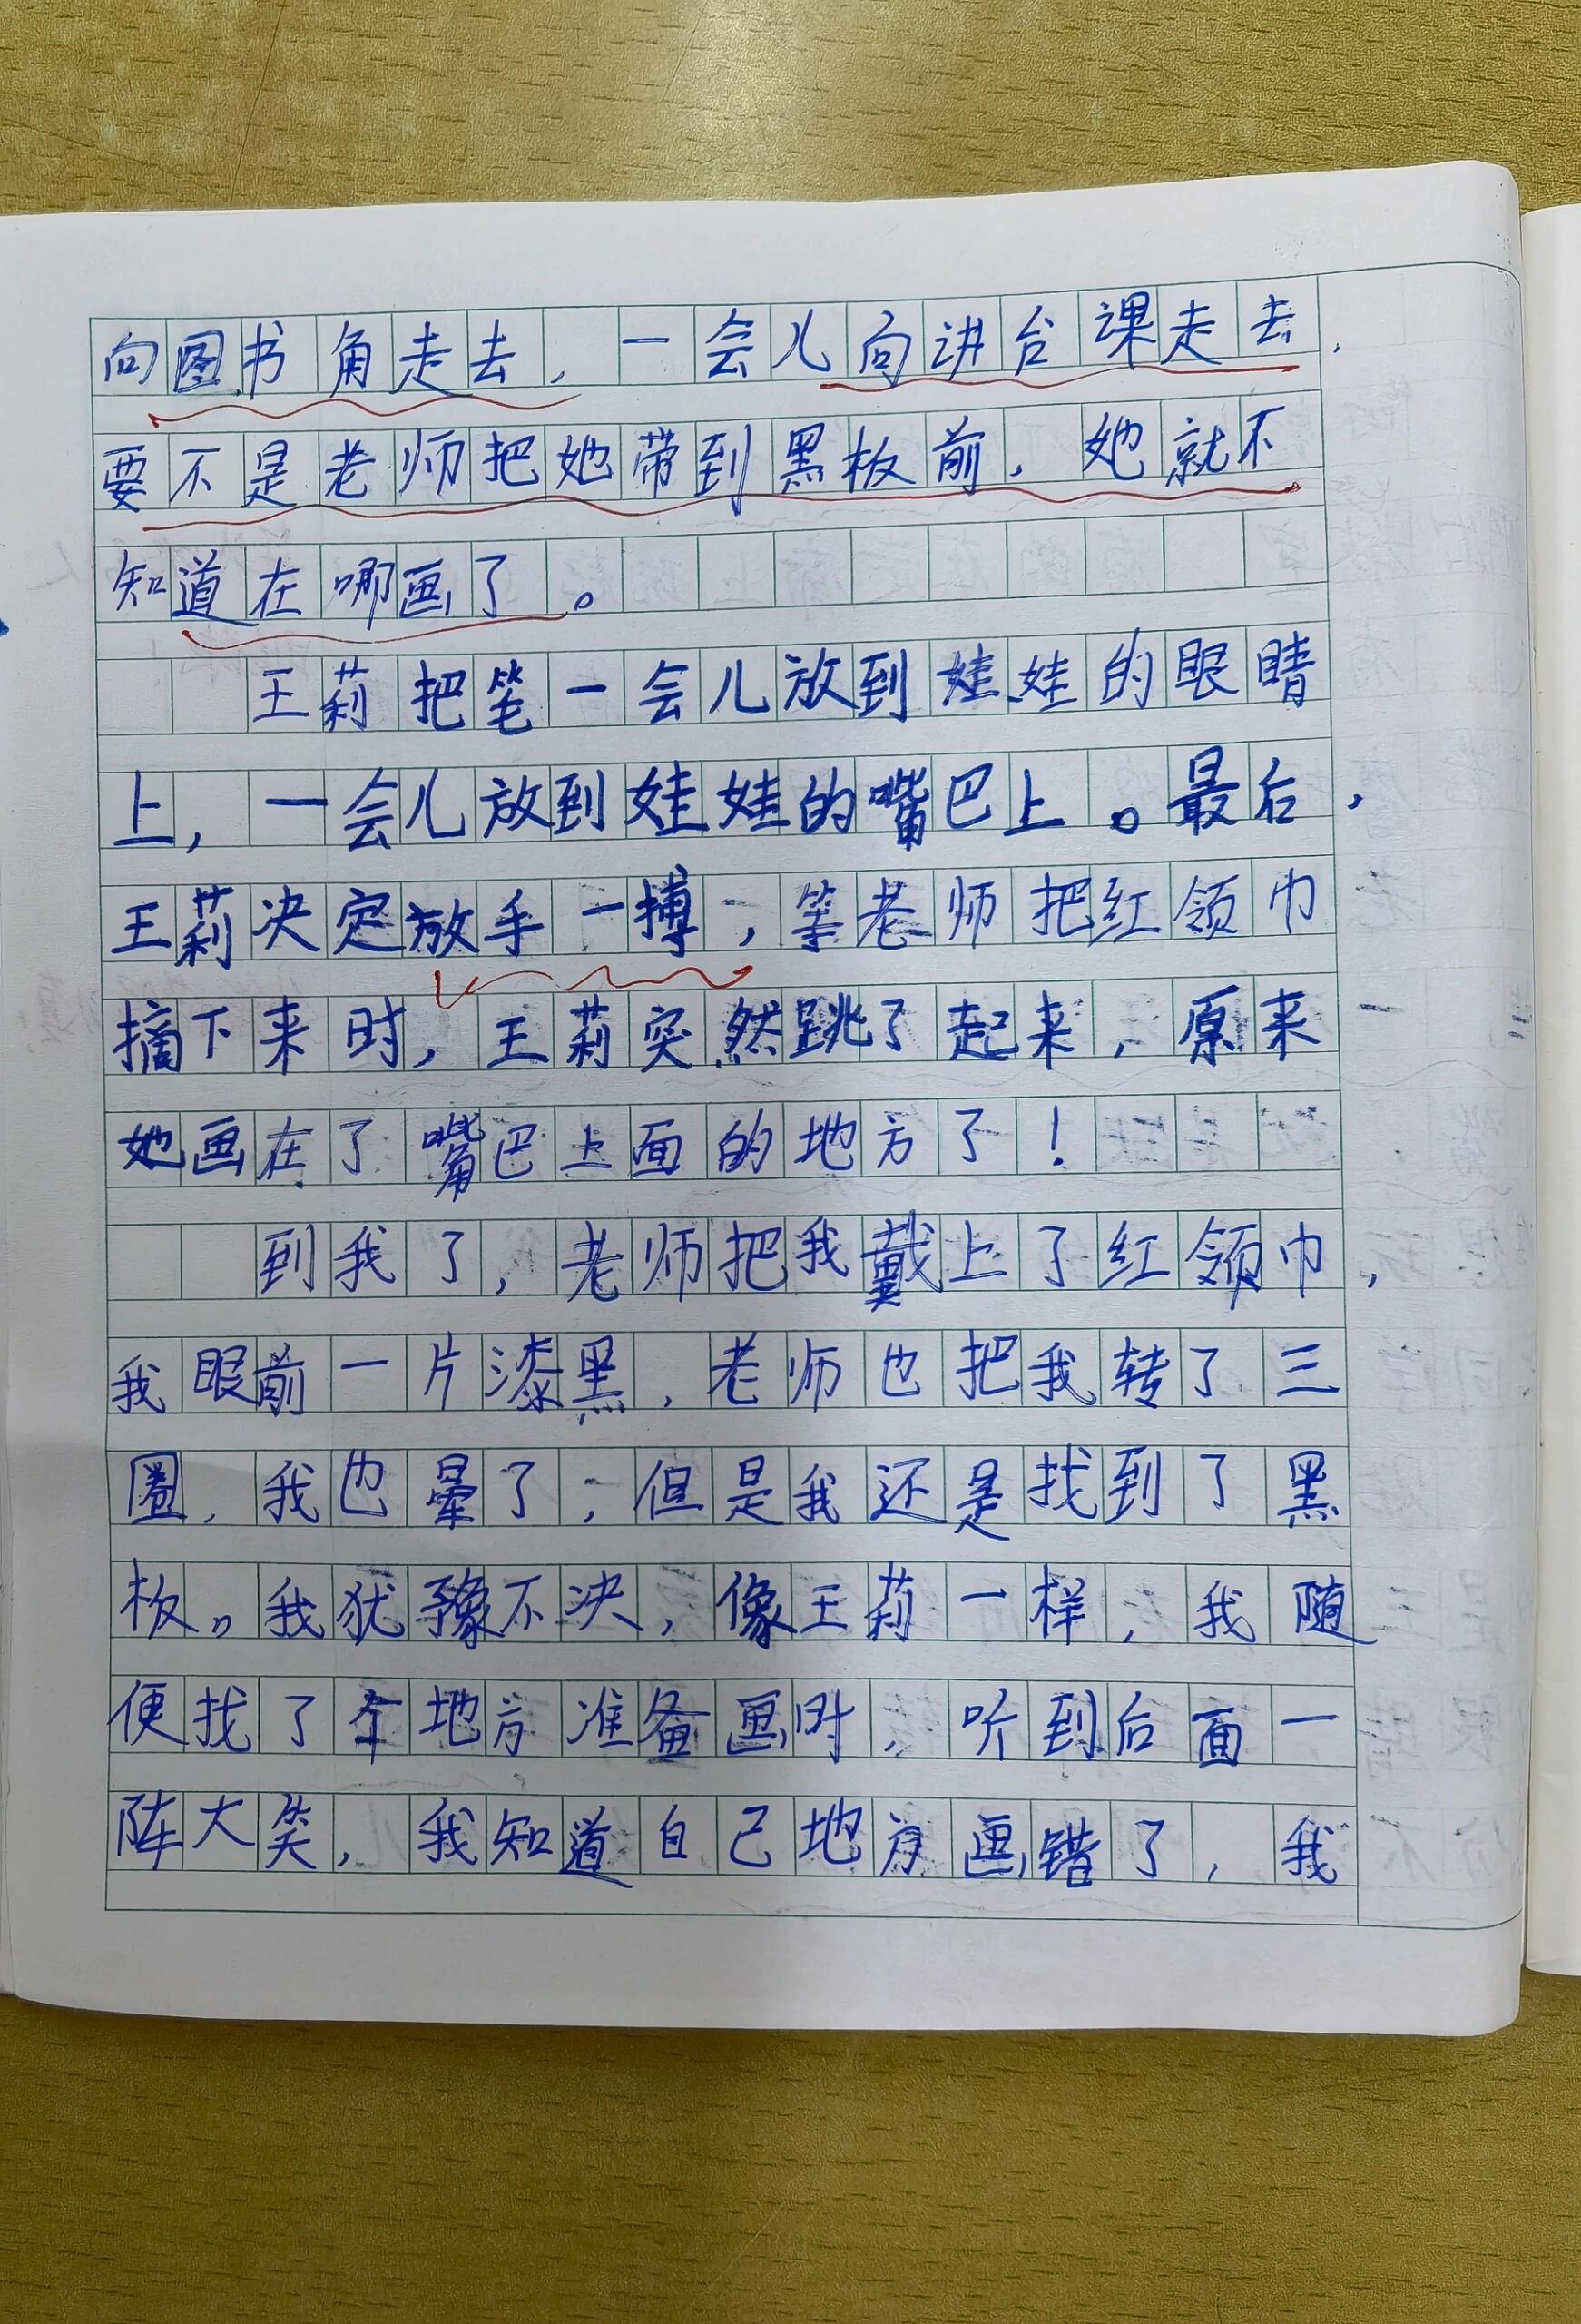 向图书角走去，一会儿向讲台课走去，
要不是老师把她带到黑板前，她就不
知道在哪画了。
王莉把笔一会儿放到娃娃的眼睛
上，一会儿放到娃娃的嘴巴上。最后，
王莉决定放手一搏，等老师把红领巾
摘下来时，王莉突然跳了起来，原来
她画在了嘴巴上面的地方了！
到我了，老师把我戴上了红领巾，
我眼前一片漆黑，老师也把我转了三
圈，我也晕了，但是我还是找到了黑
板。我犹豫不决，像王莉一样，我随
便找了个地方准备画时，听到后面一
阵大笑，我知道自己地方画错了，我